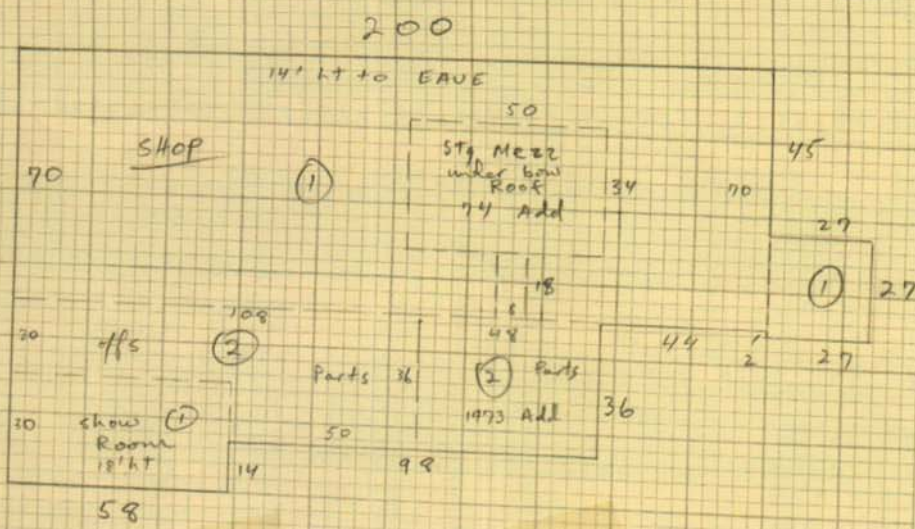 200
14' ht to EAVE
50
SHOP
Stg Mezz
under bow
Roof
74 Add
45
70
1
34
70
27
1
27
18
8
108
48
44
2
27
20
offs
2
Parts
36
2
Parts
1973 Add
36
30
Show 1
Room
18' ht
50
14
98
58